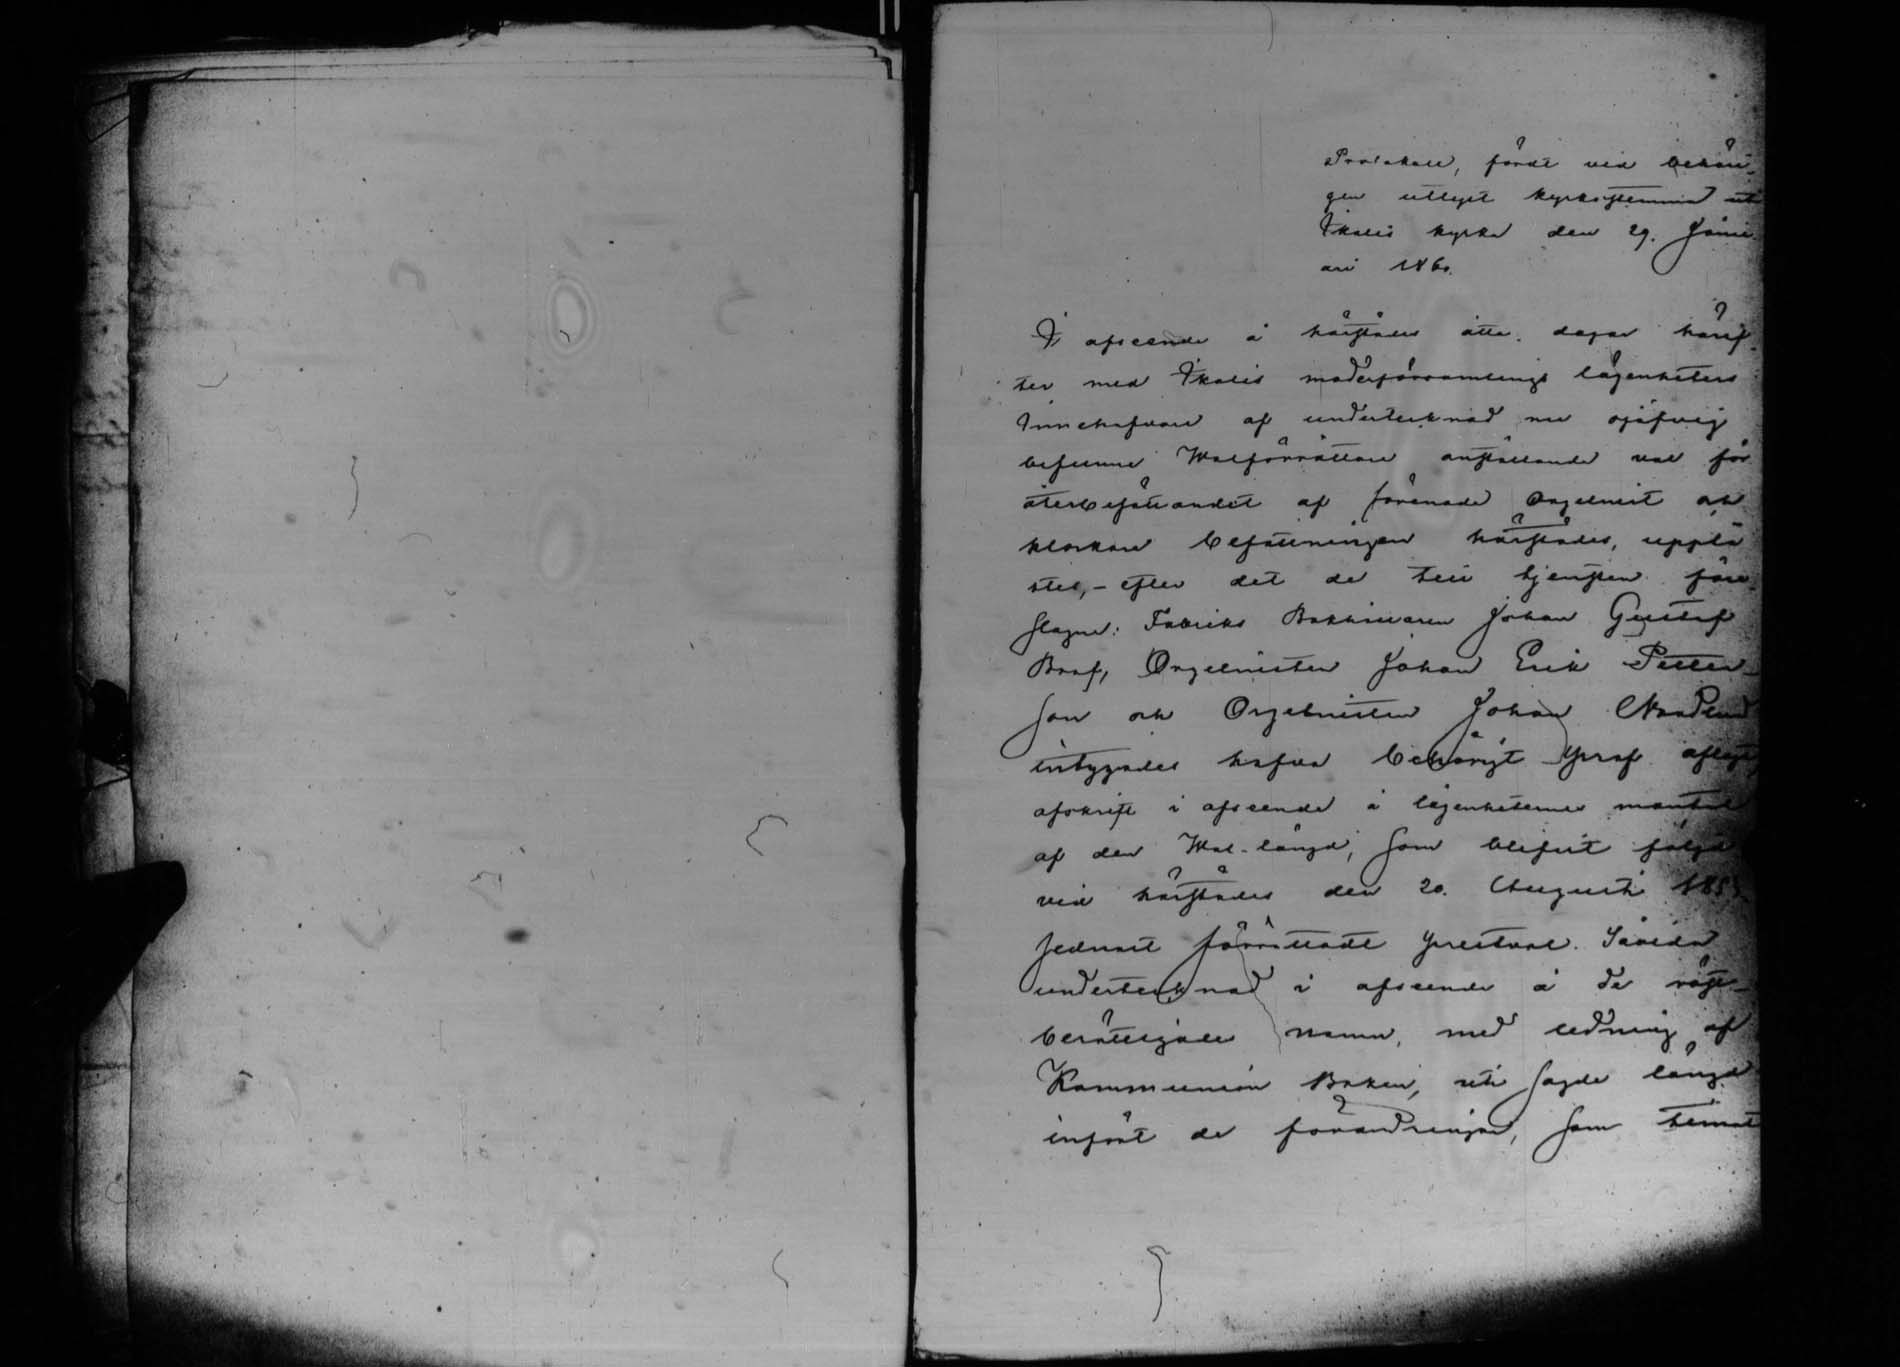 Protokoll, fördt vid behöri-
gen utlyst kyrkostemma uti
Ikalis kyrka den 29. Janu-
ari 1860.
I afseende å härstädes åtta dagar häref-
ter med Ikalis moderförsamlings lägenheters
Innehafvare af undertecknad nu ojäfvig
befunne Walförrättare anställande val för
återbesättandet af förenade Orgelnist och
klockare befattningen härstädes, upplä-
stes, - efter det de till tjensten före-
slagne: Fabriks Bokhållaren Johan Gustaf
Braf, Orgelnisten Johan Erik Petter-
son och Orgelnisten Johan Nordlund
intygades hafva behörigt prof aflagt,
afskrift i afseende å lägenheternes mantal
af den Wal-längd, som blifvit följd
vid härstädes den 20. Augusti
sednast förrättadt prestval. Såvida
undertecknad i afseende å de röst-
berättigades namn, med ledning af
Kommunion Boken, uti sagde längd
infört de förändringar, som timat